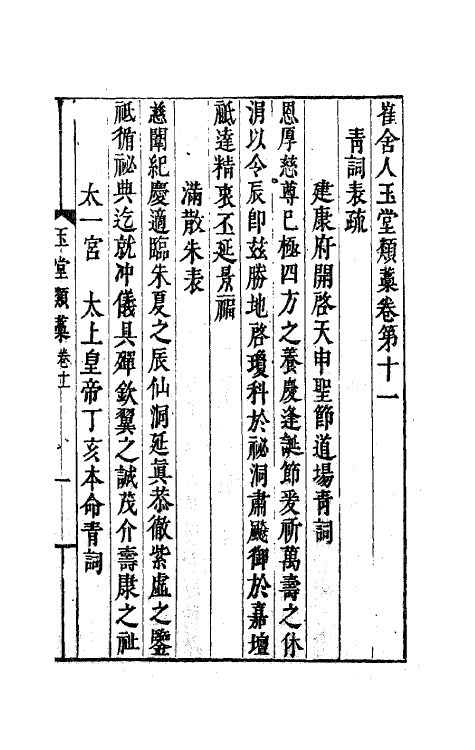 崔舍人玉堂類藁卷第十一
青詞表疏
建康府開啓天申聖節道場青詞
恩厚慈尊已極四方之養慶逢誕節爰祈萬壽之休
涓以令辰卽兹勝地啓瓊科於祕洞肅飈御於嘉壇
祗達精衷丕延景福
滿散朱表
慈闈紀慶適臨朱夏之辰仙洞延眞恭徹紫虛之鑒
祗循祕典迄就冲儀具殫欽翼之誠茂介壽康之祉
太一宮　太上皇帝丁亥本命青詞
玉堂類藁 卷十一 一